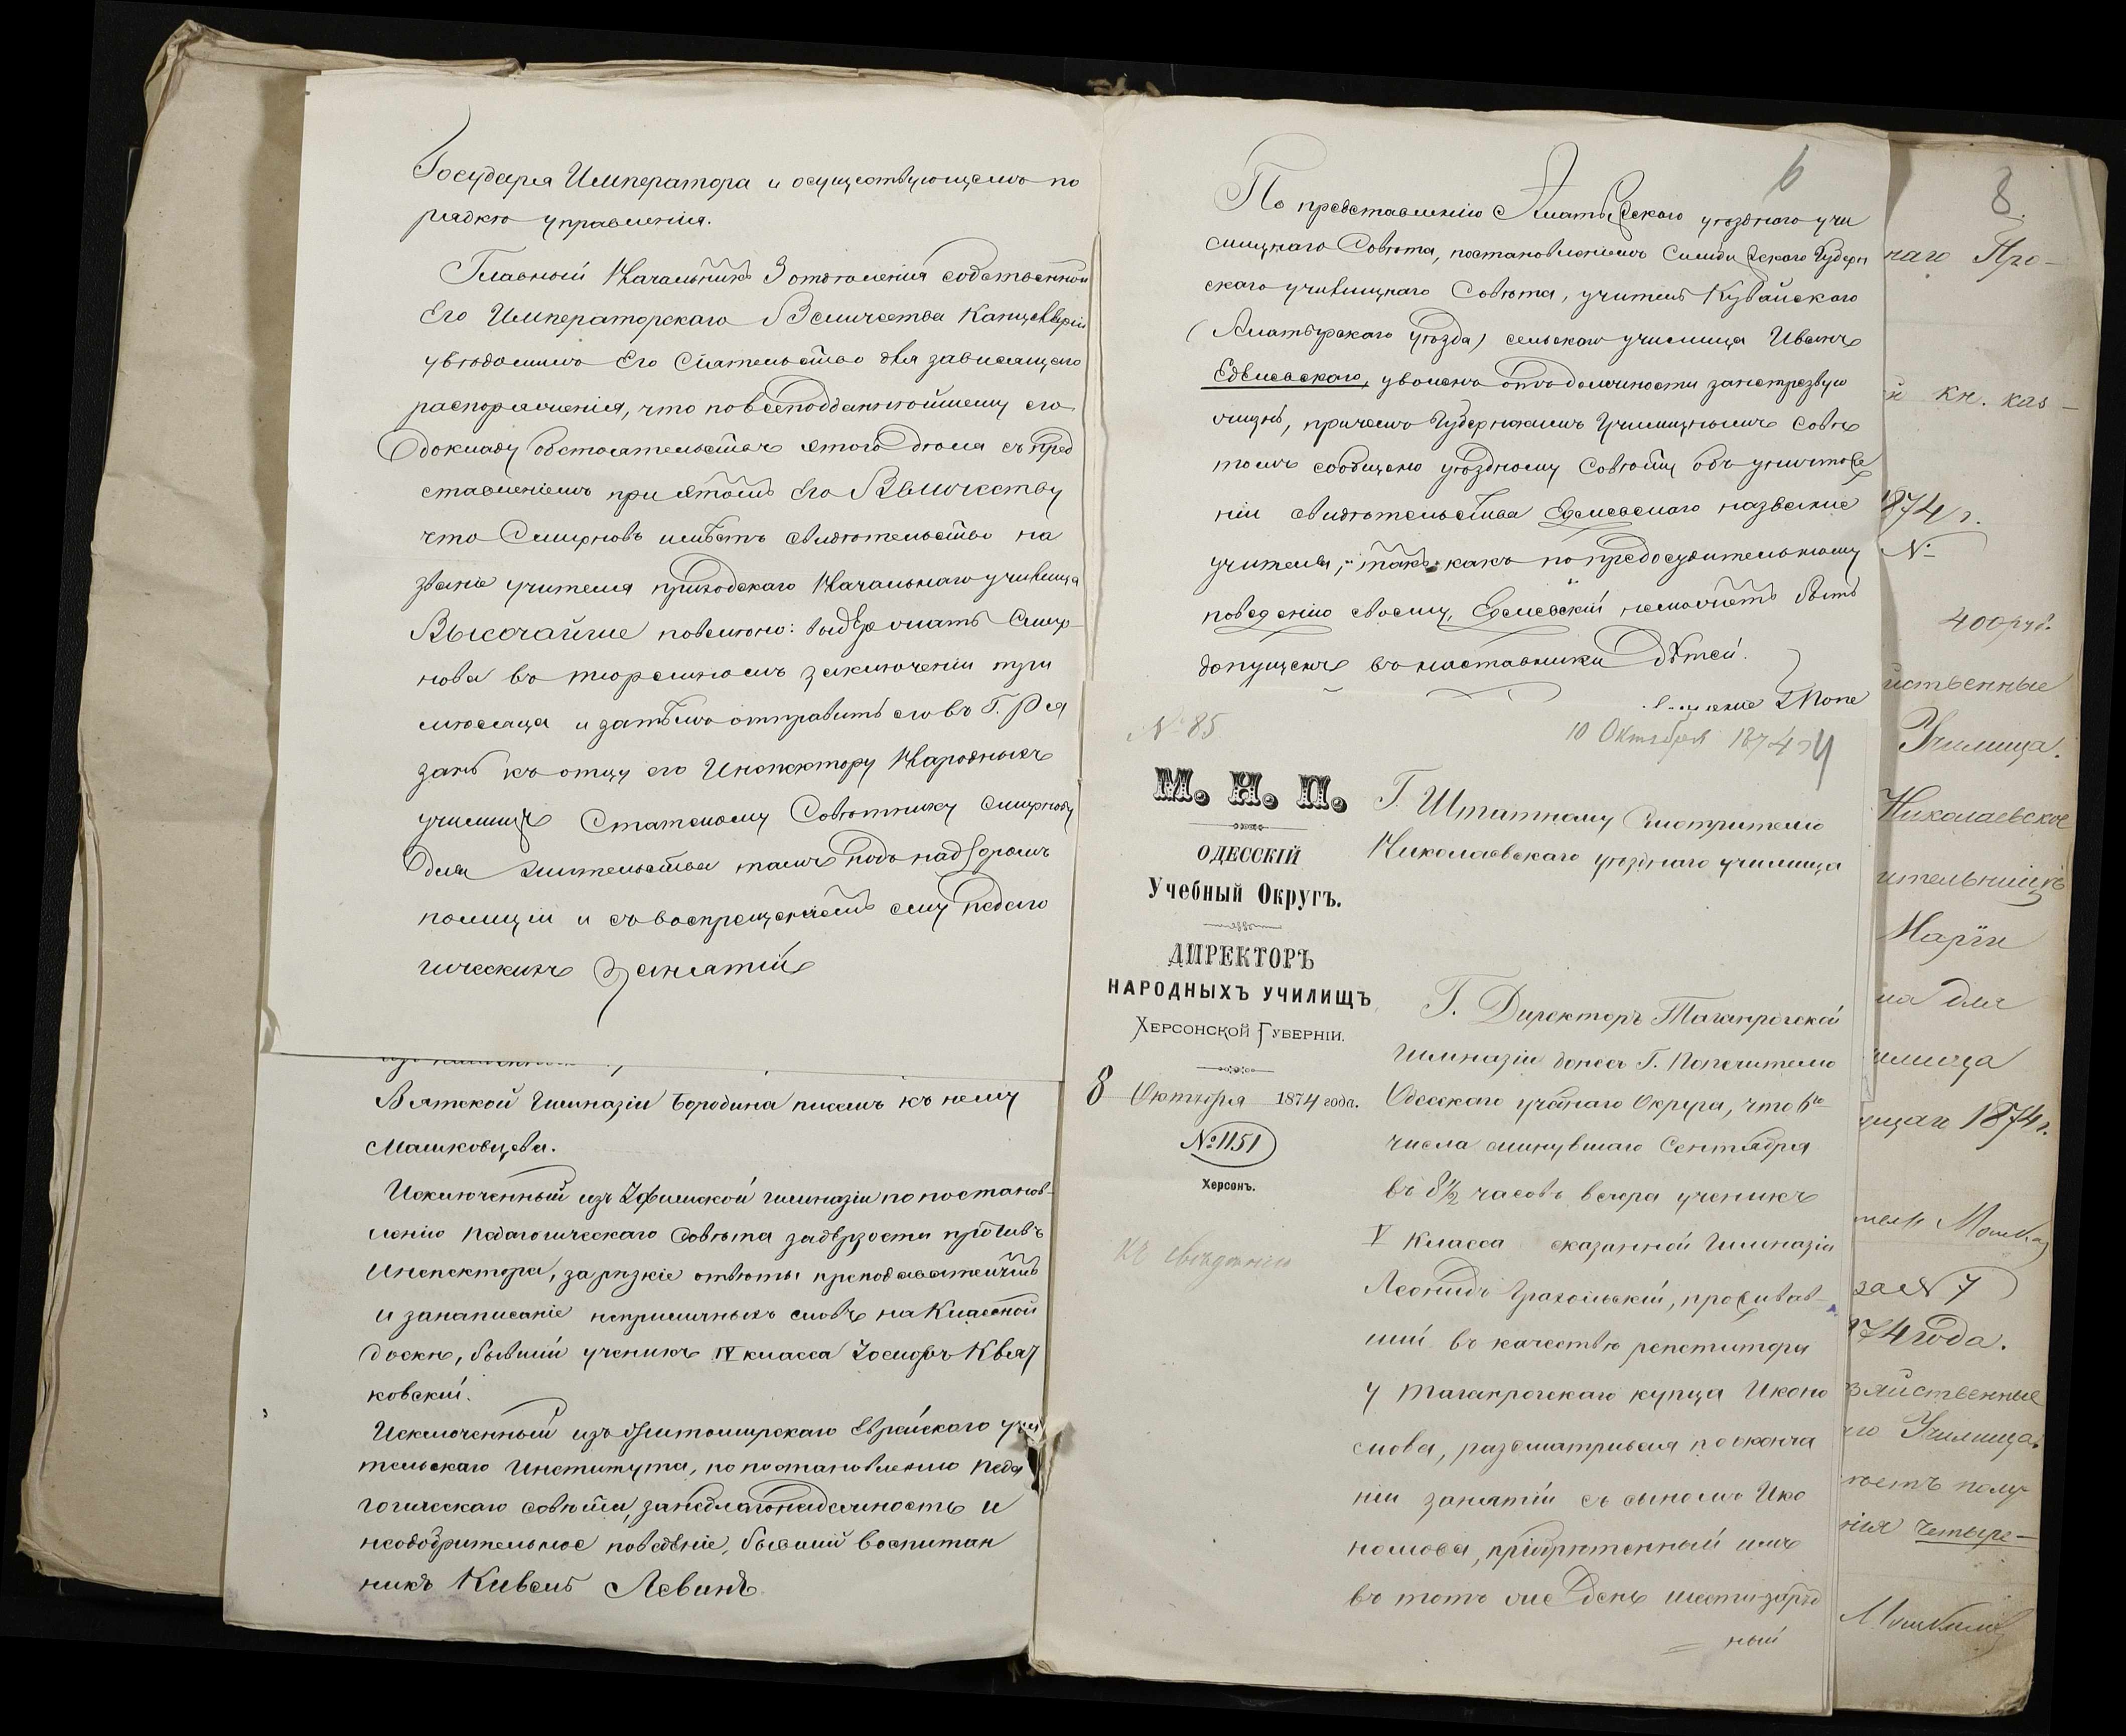 Государя Императора и осуществующемъ по
рядкѣ управленія.
Главный Начальникъ 3 отдѣленія собственной
Его Императорскаго Величества Канцеляріи
увѣдомилъ Его Сіятельство для зависящаго
распоряженія, что по всеподданнѣйшему его
докладу обстоятельствъ этого дѣла съ пред
ставленіемъ при этомъ Его Величеству
что Смирновъ имѣетъ свидѣтельство на
званіе учителя приходскаго Начальнаго училища
Высочайше повелѣно: выдержать Смир-
нова въ тюремномъ заключеніи три
мѣсяца и затѣмъ отправить его въ Г. Ря
зань къ отцу его Инспектору Народныхъ
училищъ Статскому Совѣтнику Смирнову
для жительства тамъ подъ надзоромъ
полиціи и съ воспрещеніемъ ему педаго
гическихъ занятій
Вятской Гимназіи Бородина писемъ къ нему
Машковцева.
Исключенный изъ Уфимской гимназіи по постанов-
ленію Педагогическаго Совѣта за дерзости противъ
Инспектора, за рѣзкіе отвѣты преподавателямъ
и за написаніе неприличныхъ словъ на Классной
доскѣ, бывшій ученикъ IV класса Іосифъ Квят
ковскій.
Исключенный изъ Житомирскаго Еврейскаго учи
тельскаго Института, по постановленію Педа
гогическаго совѣта, за неблагонадежность и
неодобрительное поведѣніе, бывшій воспитан
никъ Кивель Левинъ.
6
По представленію Алатырскаго уѣзднаго учи
лищнаго Совѣта, постановленіемъ Симбирскаго Губерн
скаго училищнаго Совѣта, учитель Кувайскаго
(Алатырскаго уѣзда) сельскаго училища Иванъ
Едемскаго, уволенъ отъ должности за нетрезвую
жизнь, причемъ Губернскимъ Училищнымъ Совѣ
томъ сообщено уѣздному Совѣту объ уничтоже
ніи свидѣтельства Едемскаго на званіе
учителя, такъ какъ по предосудительному
поведенію своему, Едемскій не можетъ быть
допущенъ въ наставники дѣтей.
№ 85
10 Октября 1874
М. Н. П.
ОДЕССКІЙ
Учебный Округъ.
ДИРЕКТОРЪ
НАРОДНЫХЪ УЧИЛИЩЪ
ХЕРСОНСКОЙ ГУБЕРНІИ.
8 Октября 1874 года.
№ 1151
Херсонъ.
Къ свѣдѣнію
Г. Штатному Смотрителю
Николаевскаго уѣзднаго училища
Г. Директоръ Таганрогской
Гимназіи донесъ Г. Попечителю
Одесскаго учебнаго Округа, что 6го
числа минувшаго Сентября
въ 8½ часовъ вечера ученикъ
V Класса сказанной Гимназіи
Леонидъ Грахольскій, проживав-
шій въ качествѣ репетитора
у таганрогскаго купца Иконо
мова, разсматривая по оконча
ніи занятій съ сыномъ Ико
номова, пріобрѣтенный имъ
въ тотъ же день шестизаряд
ный
8.
наго Про-
кн. каз-
1874 г.
№
400 руб.
йственные
Училища.
Николаевское
Маріи
на для
илища
ущаго 1874 г.
за № 7
874 года.
зяйственные
го Училища
ія четыре-